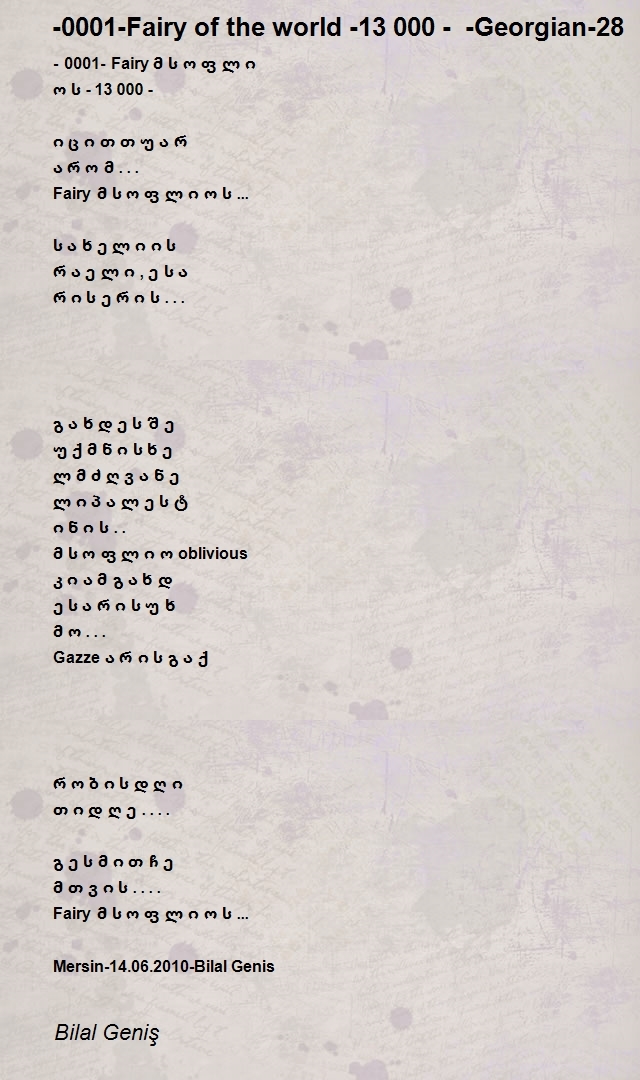 -0001-Fairy of the world -13 000 -  -Georgian-28
- 0001- Fairy მ ს ო ფ ლ ი
ო ს - 13 000 -
ი ც ი თ თ უ ა რ
ა რ ო მ . . .
Fairy მ ს ო ფ ლ ი ო ს ...
ს ა ხ ე ლ ი ი ს
რ ა ე ლ ი , ე ს ა
რ ი ს ე რ ი ს . . .
გ ა ხ დ ე ს შ ე
უ ქ მ ნ ი ს ხ ე
ლ მ ძ ღ ვ ა ნ ე
ლ ი პ ა ლ ე ს ტ
ი ნ ი ს . .
მ ს ო ფ ლ ი ო oblivious
კ ი ა მ გ ა ხ დ
ე ს ა რ ი ს უ ხ
მ ო . . .
Gazze ა რ ი ს გ ა ქ
რ ო ბ ი ს დ ღ ი
თ ი დ ღ ე . . . .
გ ე ს მ ი თ ჩ ე
მ თ ვ ი ს . . . .
Fairy მ ს ო ფ ლ ი ო ს ...
Mersin-14.06.2010-Bilal Genis
Bilal Geniş